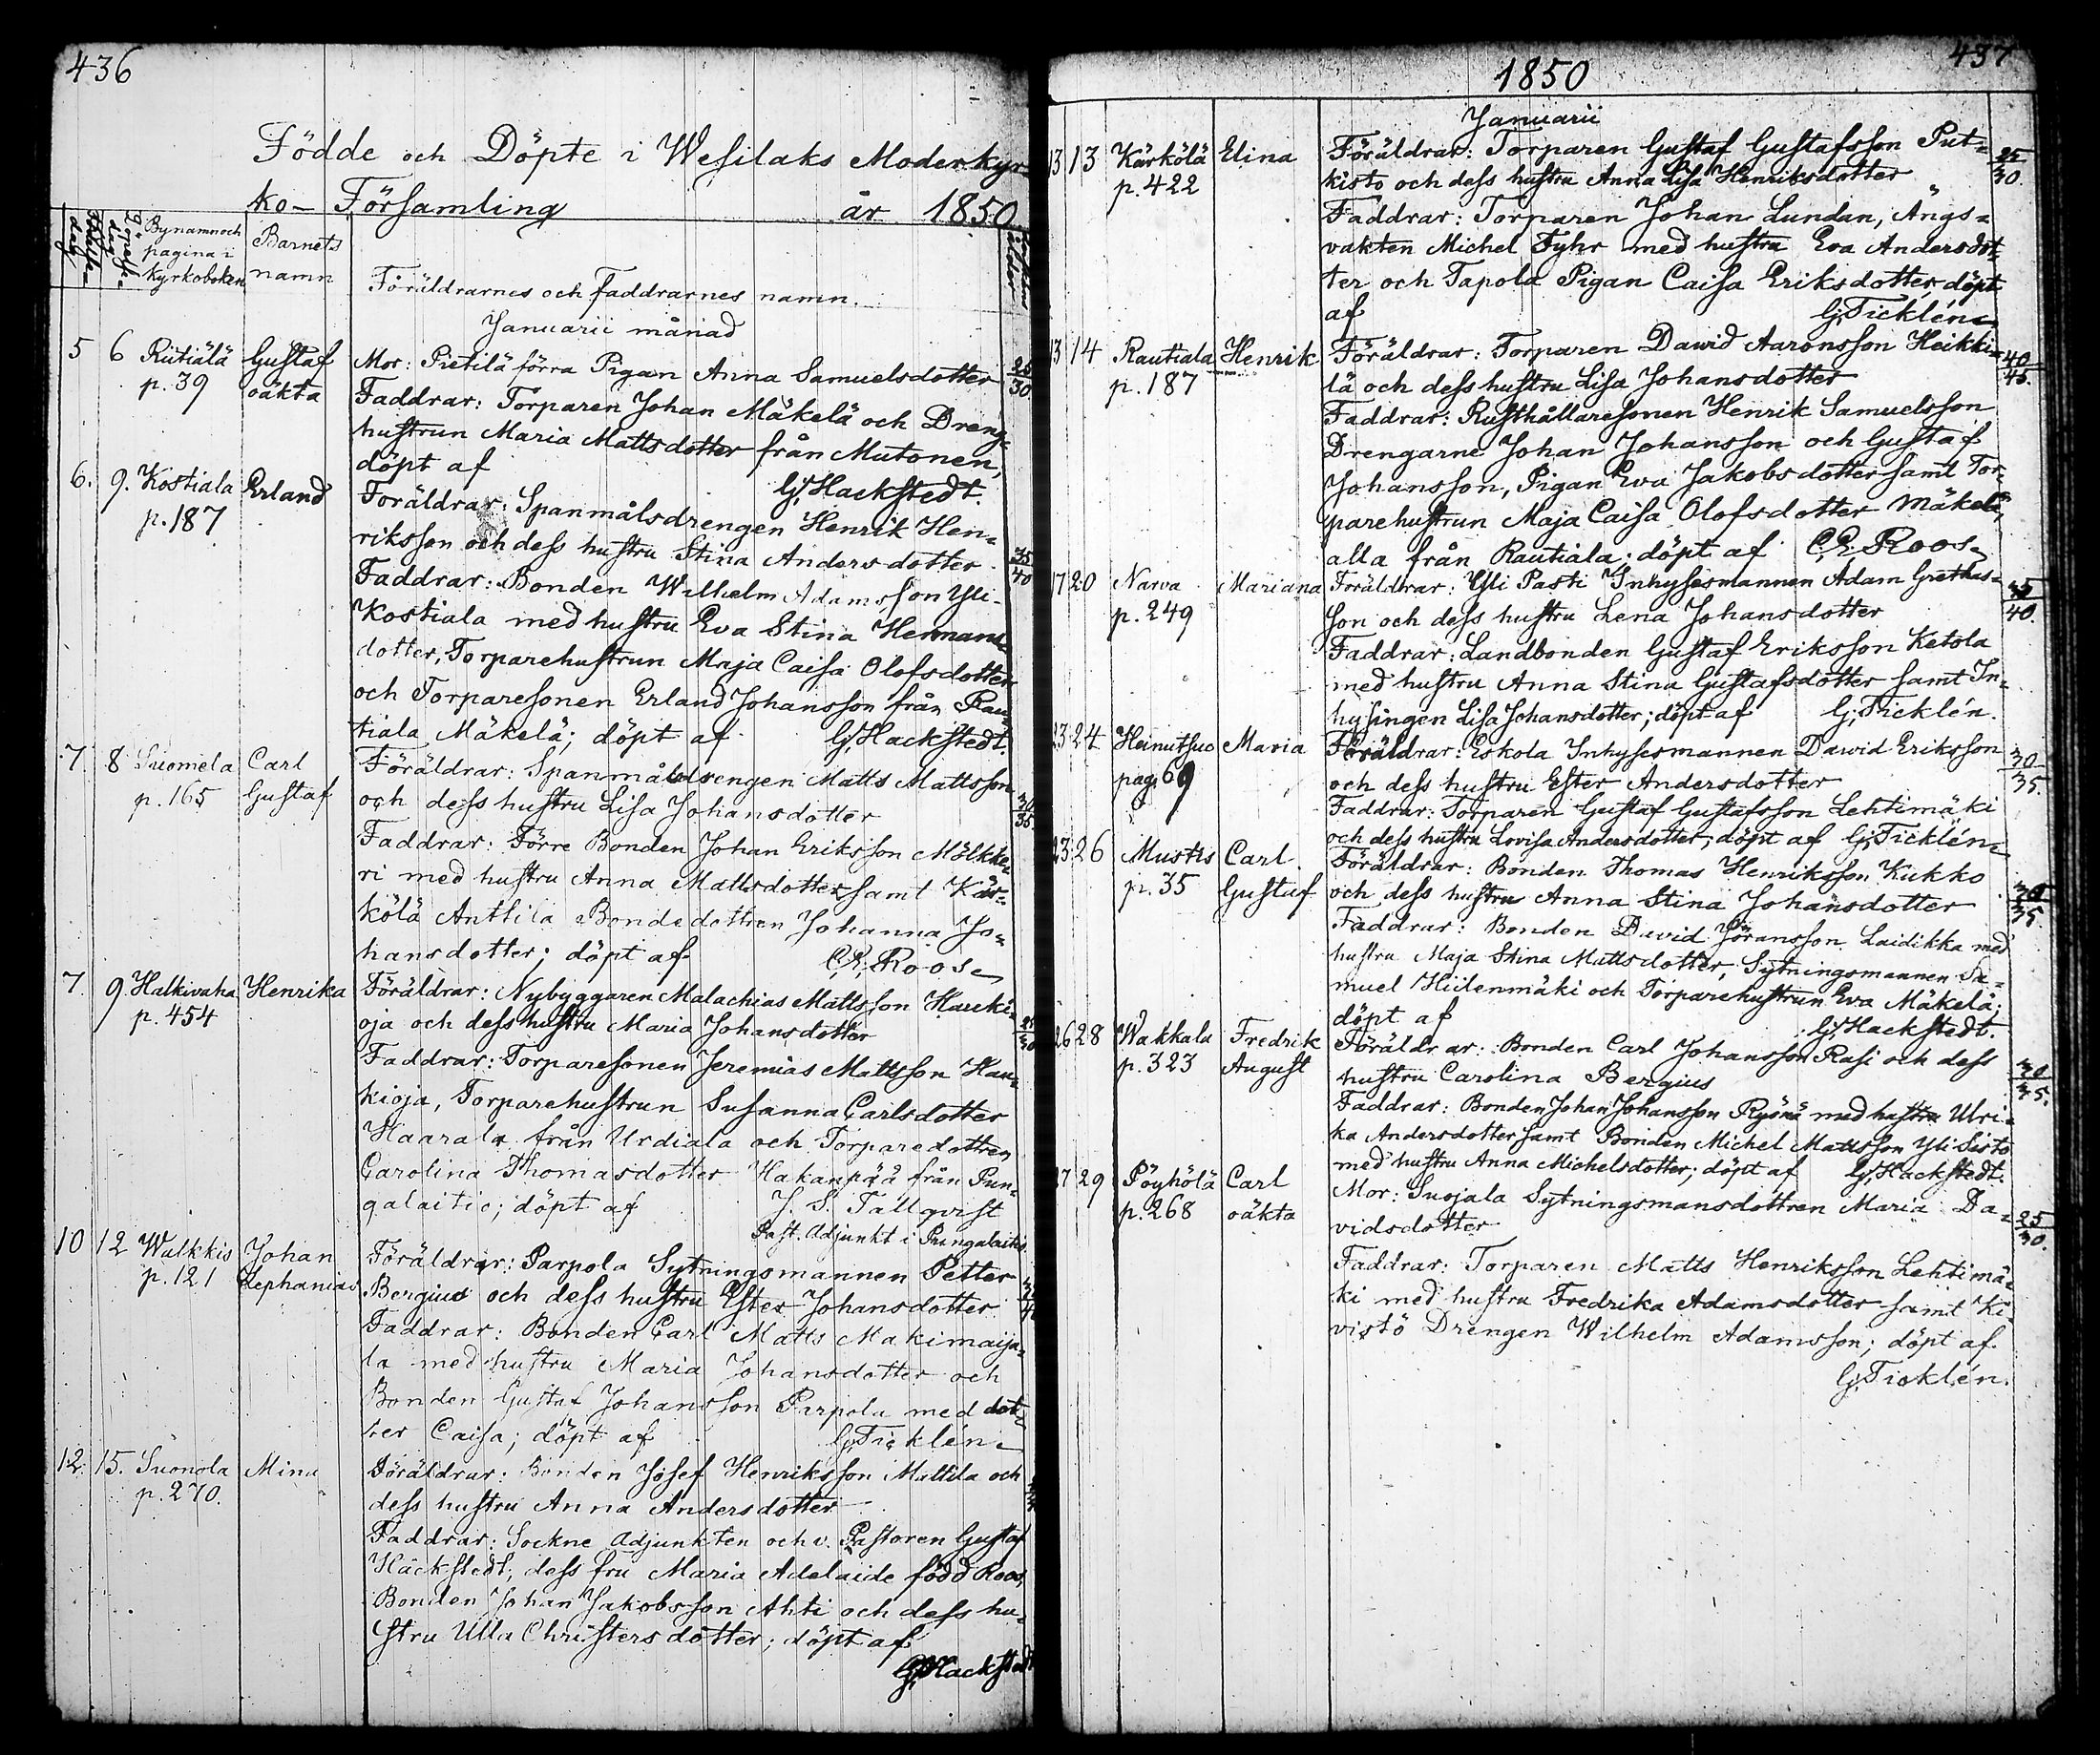 436
Födde och Döpte i Wesilaks Moderkyr-
ko- Församling år 1850
Födelse-
dag
Döpelse-
dag
Bynamn och
pagina i
Kyrkoboken
Barnets
namn
Föräldrarnes och faddrarnes namn.
Januarii månad
5 6 Riitiälä Gustaf Mor: Pietilä förra Pigan Anna Samuelsdotter 25/30
p. 39 oäkta Faddrar: Torparen Johan Mäkelä och Dreng-
hustrun Maria Mattsdotter från Mutonen,
döpt af G. Hackstedt.
6. 9. Kostiala Erland Föräldrar: Spanmålsdrengen Henrik Hen-
p. 187 riksson och dess hustru Stina Andersdotter 35/40
Faddrar: Bonden Wilhelm Adamsson Yli-
Kostiala med hustru Eva Stina Hermans-
dotter, Torparehustrun Maja Caisa Olofsdotter
och Torparesonen Erland Johansson från Rau-
tiala Mäkelä; döpt af G. Hackstedt.
7. 8 Suomela Carl Föräldrar: Spanmålsdrengen Matts Mattsson
p. 165 Gustaf och dess hustru Lisa Johansdotter 30/35
Faddrar: Förre Bonden Johan Eriksson Mölkkä-
ri med hustru Anna Mattsdotter samt Kär-
kölä Anttila Bondedottren Johanna Jo-
hansdotter; döpt af C. E. Roos
7. 9 Halkivaha Henrika Föräldrar: Nybyggaren Malachias Mattsson Haucki-
p. 454 oja och dess hustru Maria Johansdotter 25/30
Faddrar: Torparesonen Jeremias Mattsson Hau-
kioja, Torparehustrun Susanna Carlsdotter
Haarala från Urdiala och Torparedottren
Carolina Thomasdotter Hakanpää från Pun-
galaitio; döpt af J. S. Tallqvist
Past. Adjunkt i Pungalaitio
10 12 Walkkis Johan Föräldrar: Parpola Sytningsmannen Petter
p. 121 Zephanias Bergius och dess hustru Ester Johansdotter
Faddrar: Bonden Carl Matts Makimaija-
la med hustru Maria Johansdotter och
Bonden Gustaf Johansson Parpola med dot-
ter Caisa; döpt af G. Ticklén
12. 15. Suonola Mina Föräldrar: Bonden Josef Henriksson Mattila och
p. 270. dess hustru Anna Andersdotter
Faddrar: Sockne Adjunkten och v. Pastoren Gustaf
Hackstedt, dess fru Maria Adelaide född Roos,
Bonden Johan Jakobsson Ahti och dess hu-
stru Ulla Christersdotter; döpt af
G. Hackstedt
437
1850
Januarii
13 13 Kärkölä Elina Föräldrar: Torparen Gustaf Gustafsson Put- 25/30.
p. 422 kisto och dess hustru Anna Lisa Henriksdotter
Faddrar: Torparen Johan Lundan, Ängs-
vakten Michel Fyhr med hustru Eva Andersdot-
ter och Tapola Pigan Caisa Eriksdotter, döpt
af G. Ticklén
13 14 Rautiala Henrik Föräldrar: Torparen Dawid Aaronsson Heikki- 40/45.
p. 187 lä och dess hustru Lisa Johansdotter
Faddrar: Rusthållaresonen Henrik Samuelsson
Drengarne Johan Johansson och Gustaf
Johansson, Pigan Eva Jakobsdotter samt Tor-
parehustrun Maja Caisa Olofsdotter Mäkelä,
alla från Rautiala; döpt af C. E. Roos
17 20 Narva Mariana Föräldrar: Yli Pasti Inhysesmannen Adam Grethas- 35/40.
p. 249 son och dess hustru Lena Johansdotter
Faddrar: Landbonden Gustaf Eriksson Ketola
med hustru Anna Stina Gustafsdotter samt In-
hysingen Lisa Johansdotter; döpt af G. Ticklén.
23 24 Heinutsuo Maria Föräldrar: Eskola Inhysesmannen Dawid Eriksson 30/35.
pag. 69 och dess hustru Ester Andersdotter
Faddrar: Torparen Gustaf Gustafsson Lehtimäki
och dess hustru Lovisa Andersdotter, döpt af G. Ticklén
23 26 Mustis Carl Föräldrar: Bonden Thomas Henriksson Kukko
p. 35 Gustaf och dess hustru Anna Stina Johansdotter 30/35.
Faddrar: Bonden David Jöransson Laidikka med
hustru Maja Stina Mattsdotter, Sytningsmannen Sa-
muel Hiidenmäki och Torparehustrun Eva Mäkelä;
döpt af G. Hackstedt.
26 28 Wakkala Fredrik Föräldrar: Bonden Carl Johansson Rasi och dess 30/35.
p. 323 August hustru Carolina Bergius
Faddrar: Bonden Johan Johansson Ryönä med hustru Ulri-
ka Andersdotter samt Bonden Michel Mattsson Yli Sisto
med hustru Anna Michelsdotter; döpt af G. Hackstedt.
27 29 Pöyhölä Carl Mor: Suojala Sytningsmansdottren Maria Da- 25/30.
p. 268 oäkta vidsdotter
Faddrar: Torparen Matts Henriksson Lehtimä-
ki med hustru Fredrika Adamsdotter samt Ki-
vistö Drengen Wilhelm Adamsson; döpt af
G. Ticklén.